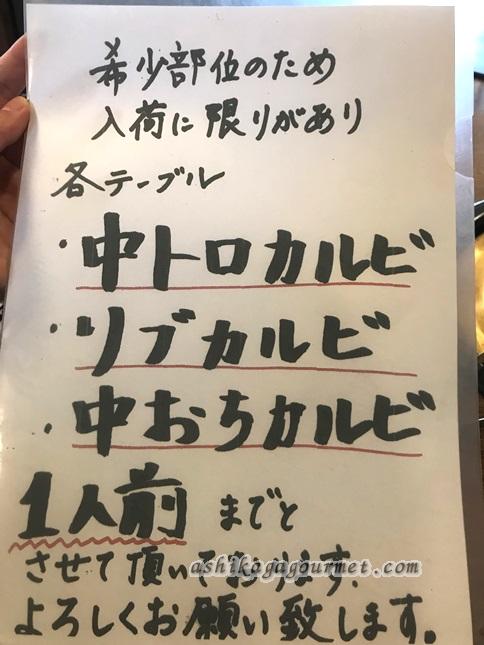 希少部位のため
入荷に限りがあり
各テーブル
・中トロカルビ
・リブカルビ
・中おちカルビ
1人前 までと
させて頂いております.
よろしくお願い致します。
ashikagagourmet.com